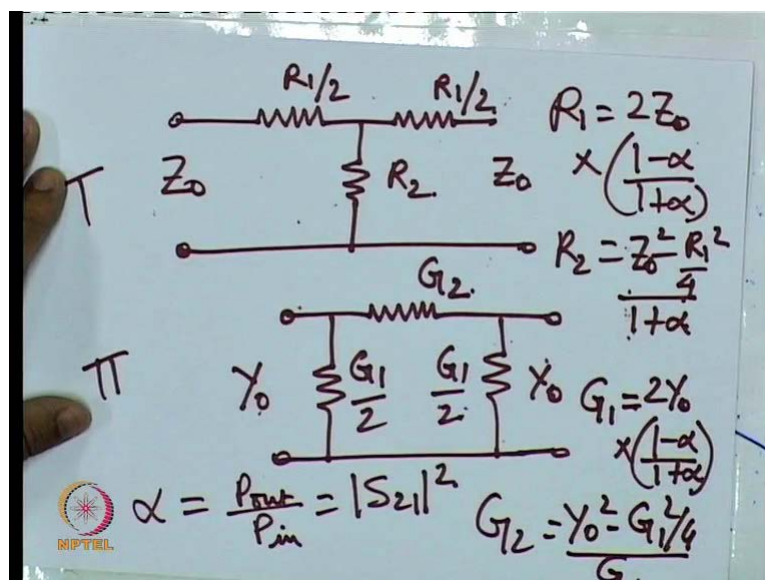 R₁/2 R₁/2
T Z₀ R₂ Z₀
R₁ = 2Z₀
× (1-α / 1+α)
R₂ = Z₀² - R₁²/4
1+α
G₂
π Y₀ G₁/2 G₁/2 Y₀
G₁ = 2Y₀
× (1-α / 1+α)
α = Pout/Pin = |S₂₁|²
G₂ = Y₀² - G₁²/4
G
NPTEL